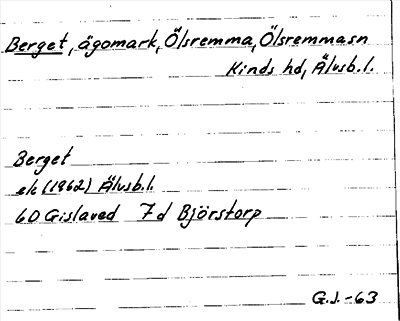 Berget, ägomark, Ölsremma, Ölsremmasn
Kinds hd, Älvsb.l.
Berget
ek (1962) Älvsb.l.
6D Gislaved 7d Björstorp
G.J.-63